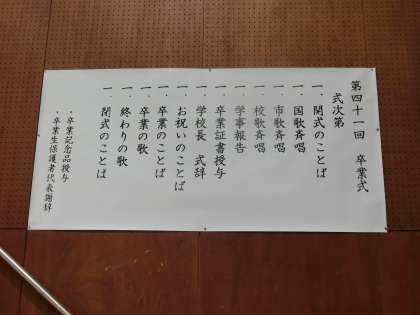 第四十一回 卒業式
式次第
一．開式のことば
一．国歌斉唱
一．市歌斉唱
一．校歌斉唱
一．学事報告
一．卒業証書授与
一．学校長 式辞
一．お祝いのことば
一．卒業のことば
一．卒業の歌
一．終わりの歌
一．閉式のことば
・卒業記念品授与
・卒業生保護者代表謝辞